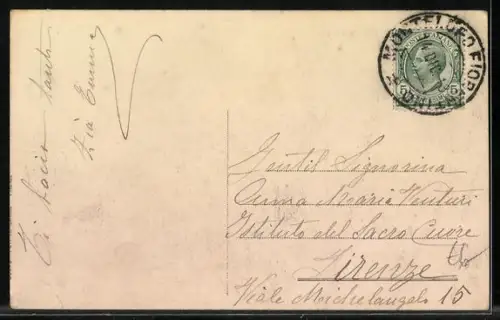 Ti bacio tanto
Zia Emma
5 5
Gentil Signorina
Anna Maria Venturi
Istituto del Sacro Cuore
Firenze
Viale Michelangelo 15